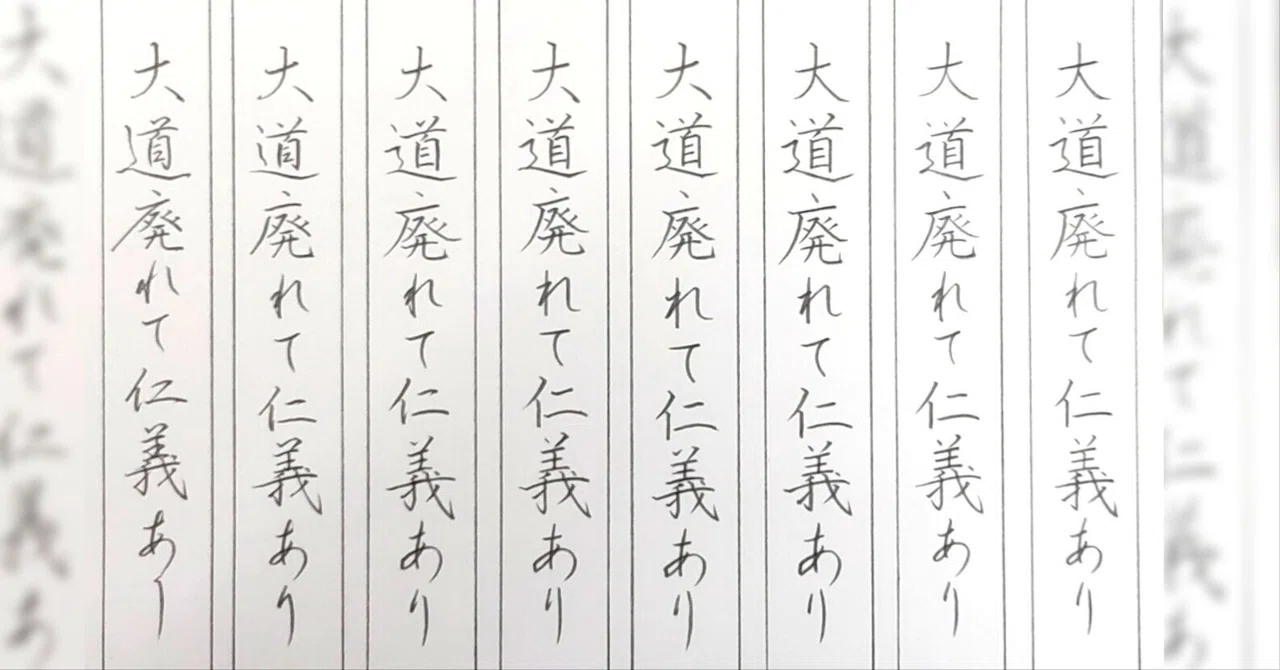 大道廃れて仁義あり
大道廃れて仁義あり
大道廃れて仁義あり
大道廃れて仁義あり
大道廃れて仁義あり
大道廃れて仁義あり
大道廃れて仁義あり
大道廃れて仁義あり